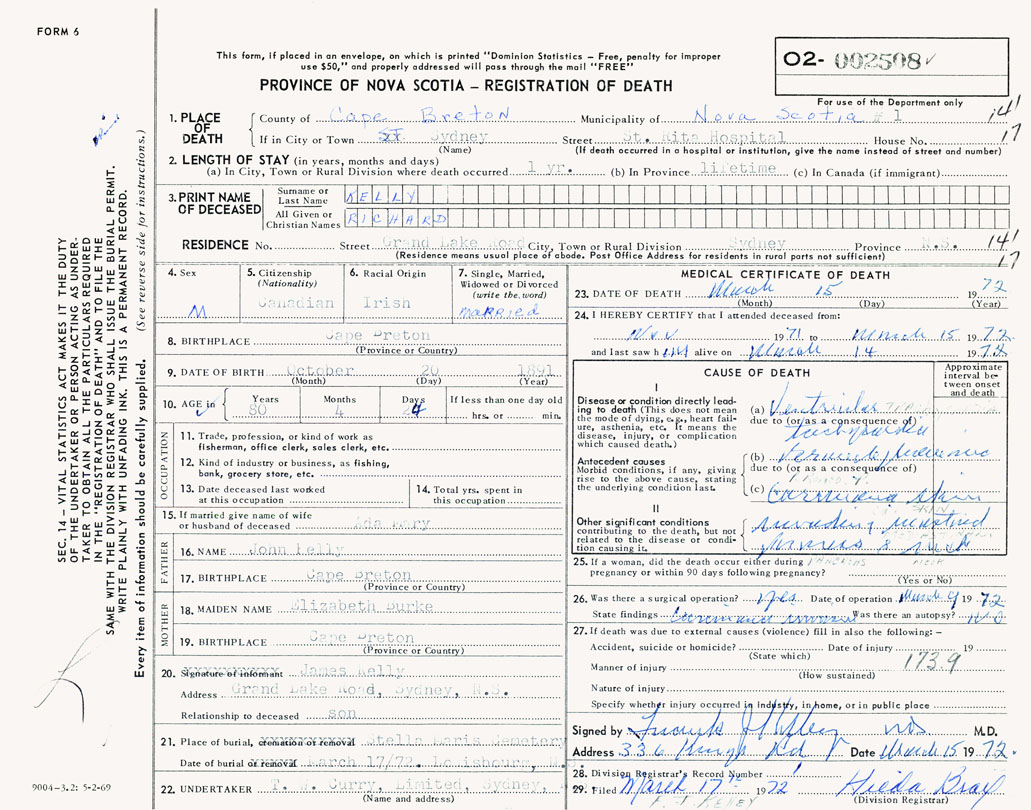 FORM 6
This form, if placed in an envelope, on which is printed "Dominion Statistics – Free, penalty for improper
use $50," and properly addressed will pass through the mail "FREE"
PROVINCE OF NOVA SCOTIA – REGISTRATION OF DEATH
O2- 002508
For use of the Department only
1. PLACE OF DEATH
County of Cape Breton Municipality of Nova Scotia #1 14'
If in City or Town Sydney Street St. Rita Hospital House No. 17
(Name) (If death occurred in a hospital or institution, give the name instead of street and number)
2. LENGTH OF STAY (in years, months and days)
(a) In City, Town or Rural Division where death occurred 1 yr. (b) In Province lifetime (c) In Canada (if immigrant)
3. PRINT NAME OF DECEASED
Surname or Last Name KELLY
All Given or Christian Names RICHARD
RESIDENCE No. Street Grand Lake Road City, Town or Rural Division Sydney Province N.S. 14'
(Residence means usual place of abode. Post Office Address for residents in rural parts not sufficient) 17
4. Sex M
5. Citizenship (Nationality) Canadian
6. Racial Origin Irish
7. Single, Married, Widowed or Divorced (write the word) MARRIED
8. BIRTHPLACE Cape Breton
(Province or Country)
9. DATE OF BIRTH October 20 1891
(Month) (Day) (Year)
10. AGE in Years 80 Months 4 Days 24 If less than one day old
hrs. or min.
OCCUPATION
11. Trade, profession, or kind of work as
fisherman, office clerk, sales clerk, etc.
12. Kind of industry or business, as fishing,
bank, grocery store, etc.
13. Date deceased last worked
at this occupation
14. Total yrs. spent in
this occupation
15. If married give name of wife
or husband of deceased Ada Mary
FATHER
16. NAME John Kelly
17. BIRTHPLACE Cape Breton
(Province or Country)
MOTHER
18. MAIDEN NAME Elizabeth Burke
19. BIRTHPLACE Cape Breton
(Province or Country)
20. Signature of informant James Kelly
Address Grand Lake Road, Sydney, N.S.
Relationship to deceased son
21. Place of burial, cremation or removal Stella Maris Cemetery
Date of burial or removal March 17/72. Louisbourg, N.
22. UNDERTAKER T. W. Curry, Limited, Sydney,
(Name and address)
MEDICAL CERTIFICATE OF DEATH
23. DATE OF DEATH March 15 1972
(Month) (Day) (Year)
24. I HEREBY CERTIFY that I attended deceased from:
Nov 1971 to March 15 1972
and last saw him alive on March 14 1972
CAUSE OF DEATH
Approximate interval between onset and death
I
Disease or condition directly leading to death (This does not mean the mode of dying, e.g., heart failure, asthenia, etc. It means the disease, injury, or complication which caused death.)
(a) Ventricular
due to (or as a consequence of)
tachycardia
Antecedent causes
Morbid conditions, if any, giving rise to the above cause, stating the underlying condition last.
(b)
due to (or as a consequence of)
(c) Carcinoma skin
II
Other significant conditions contributing to the death, but not related to the disease or condition causing it.
invading
25. If a woman, did the death occur either during
pregnancy or within 90 days following pregnancy?
(Yes or No)
26. Was there a surgical operation? yes Date of operation March 9 1972
State findings Was there an autopsy? No
27. If death was due to external causes (violence) fill in also the following: –
Accident, suicide or homicide? Date of injury 19
(State which) 173.9
Manner of injury
(How sustained)
Nature of injury
Specify whether injury occurred in industry, in home, or in public place
Signed by M.D.
Address 336 Kings Rd Date March 15 1972.
28. Division Registrar's Record Number
29. Filed March 17 1972
(Division Registrar)
SEC. 14 – VITAL STATISTICS ACT MAKES IT THE DUTY
OF THE UNDERTAKER OR PERSON ACTING AS UNDERTAKER
TO OBTAIN ALL THE PARTICULARS REQUIRED
IN THE "REGISTRATION OF DEATH" AND TO FILE THE
SAME WITH THE DIVISION REGISTRAR WHO SHALL ISSUE THE BURIAL PERMIT.
WRITE PLAINLY WITH UNFADING INK. THIS IS A PERMANENT RECORD.
Every item of information should be carefully supplied. (See reverse side for instructions.)
9004-3.2: 5-2-69